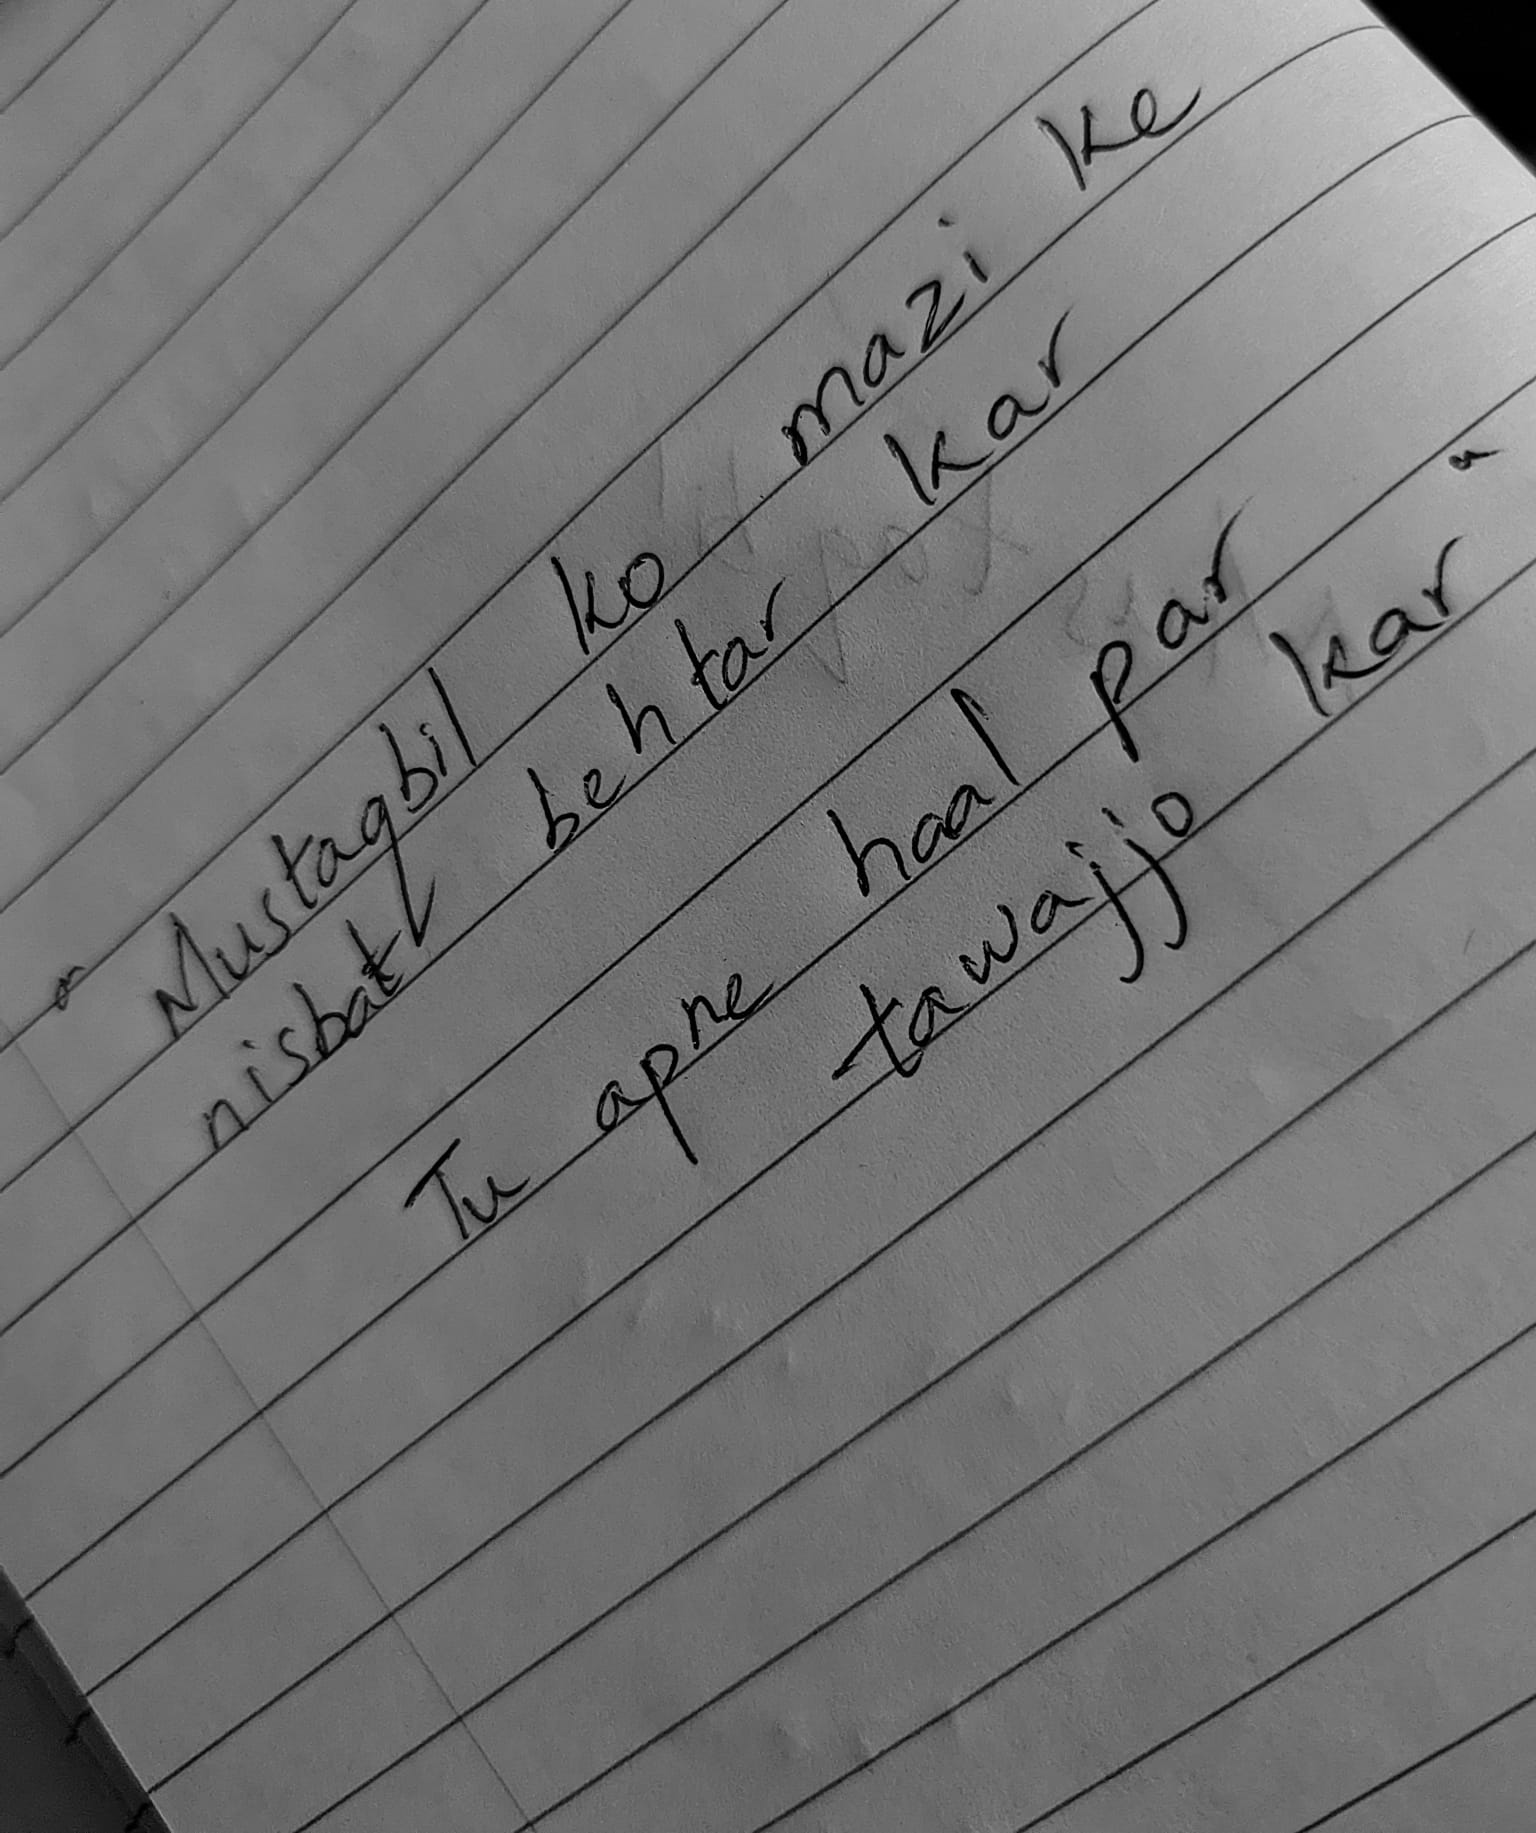 " Mustaqbil ko mazi ke
nisbat behtar kar
Tu apne haal par
tawajjo kar "